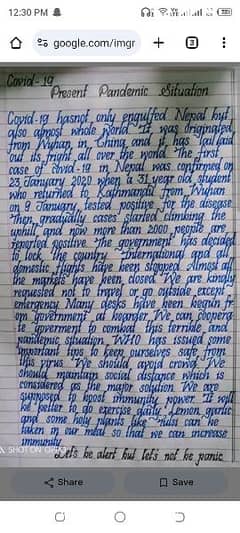 12:30 PM
google.com/imgr
Covid-19
Present Pandemic Situation
Covid-19 hasnot only engulfed Nepal but
also almost whole world. It was originated
from Wuhan in China and it has laid
out its fright all over the world. The first
case of Covid-19 in Nepal was confirmed on
23 January 2020 when a 31 year old student
who returned to Kathmandu from Wuhan
on 9 January, tested positive for the disease.
Then gradually cases started climbing the
uphill and now more than 2000 people are
reported positive. The government has decided
to lock the country. International and all
domestic flights have been stopped. Almost all
the markets have been closed. We are kindly
requested not to travel or go outside except
emergency. Many desks have been begun fr
om government at boarder. We can coopera-
te goverment to combat this terrible and
pandemic situation. WHO has issued some
important tips to keep ourselves safe from
this virus. We should avoid crowd. We
should maintain social distance which is
considered as the major solution. We are
supposed to boost immunity power. It will
be better to do exercise daily. Lemon, garlic
and some holy plants like can be
taken in our meal so that we can increase
immunity.
Let's be alert but let's not be panic.
SHOT ON
Share
Save